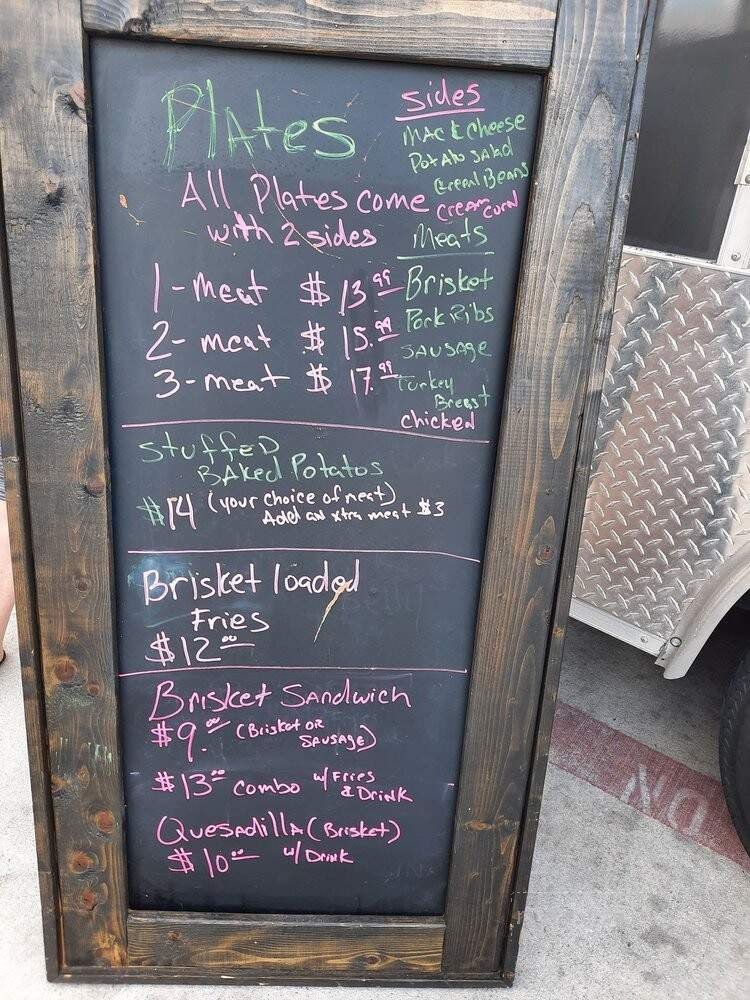 Plates
All Plates come
with 2 sides
1-meat $13.99
2-meat $15.99
3-meat $17.99
sides
MAC & Cheese
Potato SALAD
Green Beans
CREAM CORN
Meats
Brisket
Pork Ribs
SAUSAge
Turkey
Breast
chicked
STUFFED
BAked Potatos
$14 (your choice of meat)
Add an xtra meat $3
Brisket loaded
Fries
$12.00
Brisket SANdwich
$9.00 (Brisket OR
SAUSAge)
$13.00 combo w/ FRIES
& DRINK
QuesAdillA (Brisket)
$10.00 w/ DRINK
NO